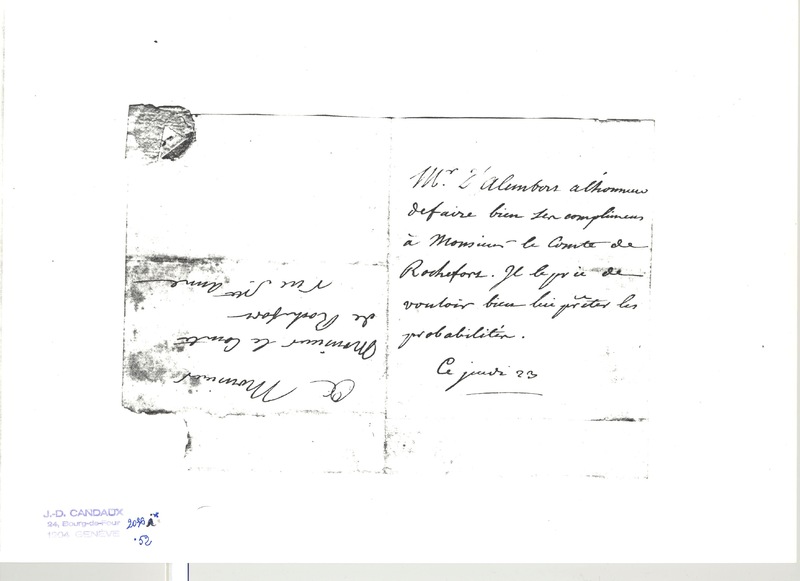 Mr. D'Alembert a l'honneur
de faire bien ses complimens
à Monsieur le Comte de
Rochefort. Il le prie de
vouloir bien lui prêter les
probabilités.
Ce jeudi 23
A Monsieur
Monsieur le Comte
de Rochefort
rue Ste Anne
J.-D. CANDAUX
24, Bourg-de-Four
1204 GENÈVE